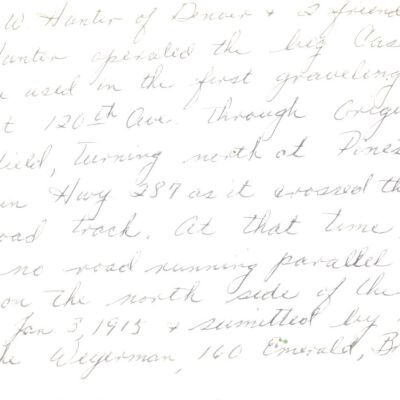 W. Hunter of Denver + 2 friend
Hunter operated the big Cas
used in the first graveling
t 120th Ave. Through Origi
field, turning north at Pines
in Hwy 287 as it crossed th
oad track. At that time
no road running parallel
on the north side of the
Jan 3, 1915 + sumitted by
the Weyerman, 160 Emerald, Br